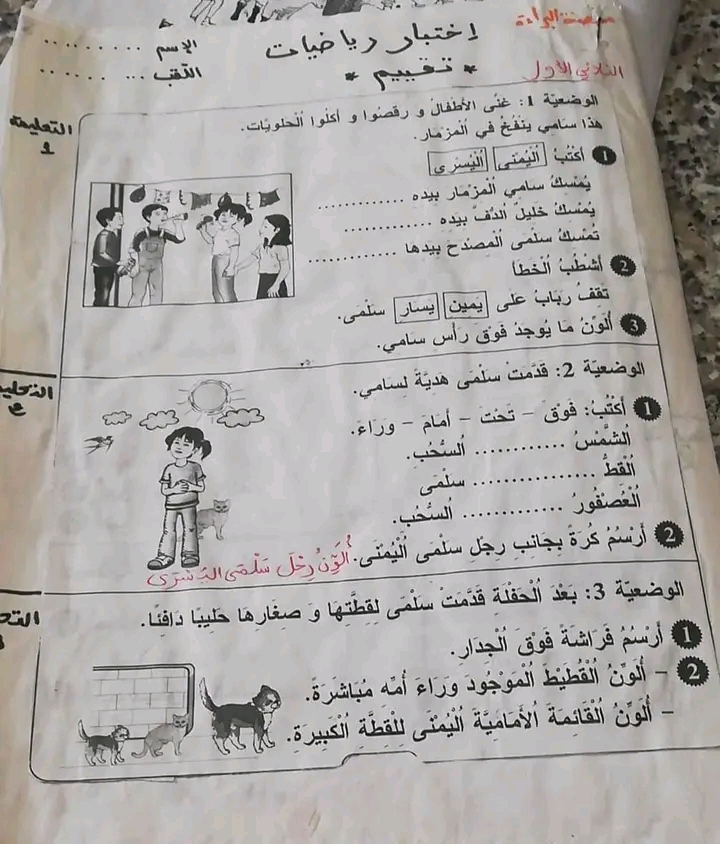 صفحة البراءة
إختبار رياضيات
الإسم ..........
* تقييم *
اللقب ... ......
الثلاثي الأول
التعليمة
1
الوضعيّة 1: غنّى الأطفالُ و رقصُوا و أكلُوا الْحلويّات.
هذا سامي ينفُخُ في الْمزمَار.
1 أكتُبُ الْيُمْنَى الْيُسْرى
يُمْسكُ سامي الْمزمَار بيده ............
يُمْسكُ خليلُ الدّف بيده ............
تُمْسكُ سلْمى الْمصْدح بيدها ............
2 أشْطُبُ الْخطأ
تقفُ ربابُ على يمين يسار سلْمى.
3 ألوّنُ مَا يُوجدُ فوْق رَأس سامي.
الوضعيّة 2: قدّمتْ سلْمى هديّةً لسامي.
1 أكْتُبُ: فوْق - تحْت - أمام - وراء.
الشّمْسُ ............ السّحُب.
الْقطّ ............ سلْمى
الْعصْفُورُ ............ السّحُب.
2 أرْسُمُ كُرَةً بجانب رجْل سلْمى الْيُمْنى.
ألوّنُ رجْل سلْمى اليسْرى
الوضعيّة 3: بعْد الْحفْلة قدّمتْ سلْمى لقطّتها و صغارها حليبًا دافئًا.
1 أرْسُمُ فراشةً فوْق الْجدار.
2 - ألوّنُ الْقُطيْط الْموْجُود وراء أمّه مُباشرةً.
- ألوّنُ الْقائمة الأماميّة الْيُمْنى للْقطّة الْكبيرة.